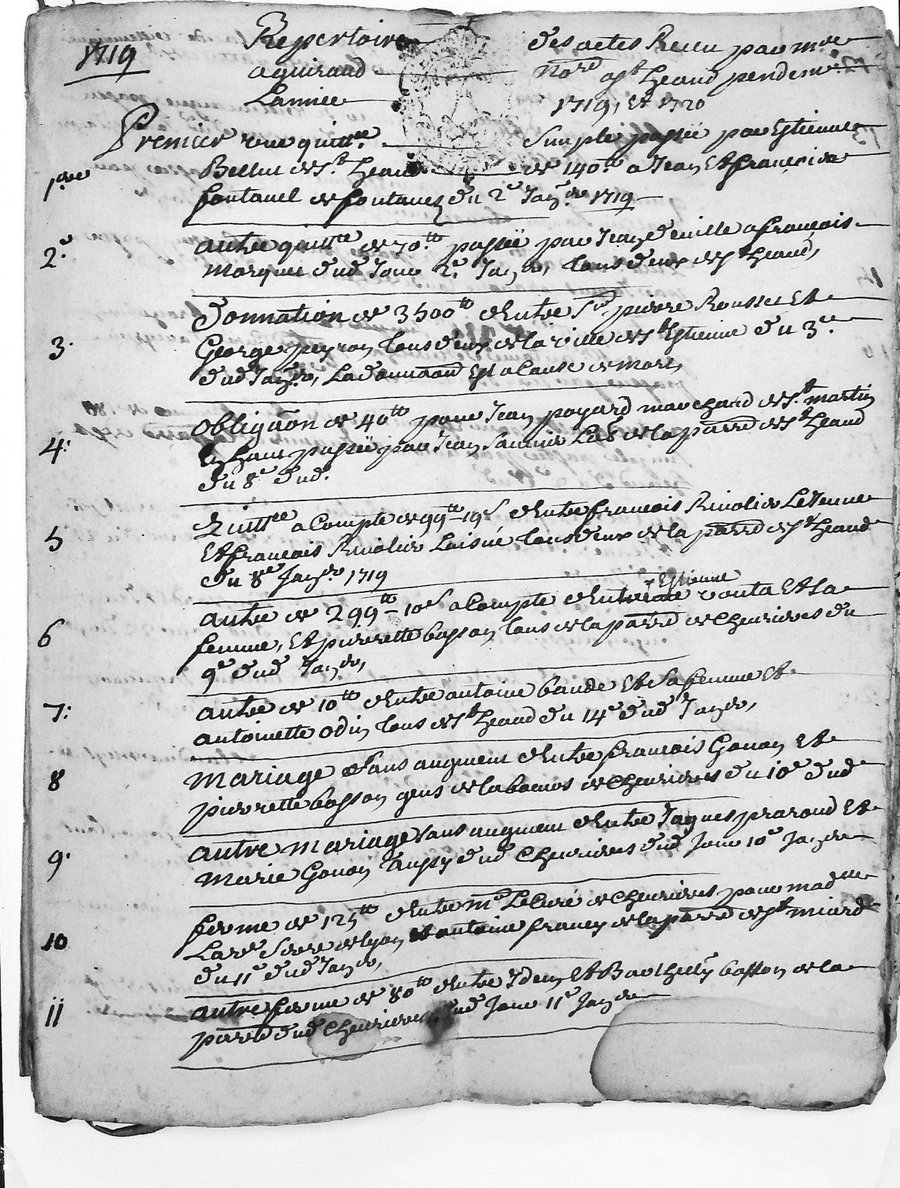 1719 Repertoire des actes Receu par me
aguiraud nore à St heand pendent
Lannée 1719, et 1720
Premier une quittce simple passée par Estienne
1ere Bellue de St heand de 140tt a Jean Et françois
fontanel de fontanes du 2e Janer 1719
2e autre quittce de 70tt passée par Jean a françois
Marques dud Jour 2e Janer, tous deux de St heand,
donnation de 3500tt Entre Sr pierre Rousset Et
3. George peyron tous deux de la ville de St Estienne du 3e
dud Janer, Ladonnaon Est a Cause de mort,
obligaon de 40tt pour Jean poyard marchand de St martin
4. En haut passée par Jean Lar de la parre de St heand
du 8e dud.
5 Quittce a Compte de 99tt-19s Entre françois Rivolier Le Jeune
Et françois Rivolier Laisné tous deux de la parre de St heand
du 8e Janer 1719
Estienne
6 autre de 299tt-10s a Compte Entre Et sa
femme, Et pierrette basson tous de la parre de chevrieres du
9e dud Janer,
7: autre de 10tt Entre antoine baude Et Sa femme Et
antoinette odin tous de St heand du 14e dud Janer,
8 Mariage Sans augment Entre françois Gonon Et
pierrette basson gens de labeurs de chevrieres du 10e dud
9. autre mariage sans augment Entre Jaques praroud Et
Marie Gonon aussy dud chevrieres dud Jour 10e Janer
ferme de 125tt Entre mr Le Curé de chevrieres pour made
10 de lyon Et antoine françy de la parre de St miard
du 11e dud Janer,
11 autre ferme de 80tt Entre Idem Et Barthely basson de la
parre dud chevrieres dud Jour 11e Janer